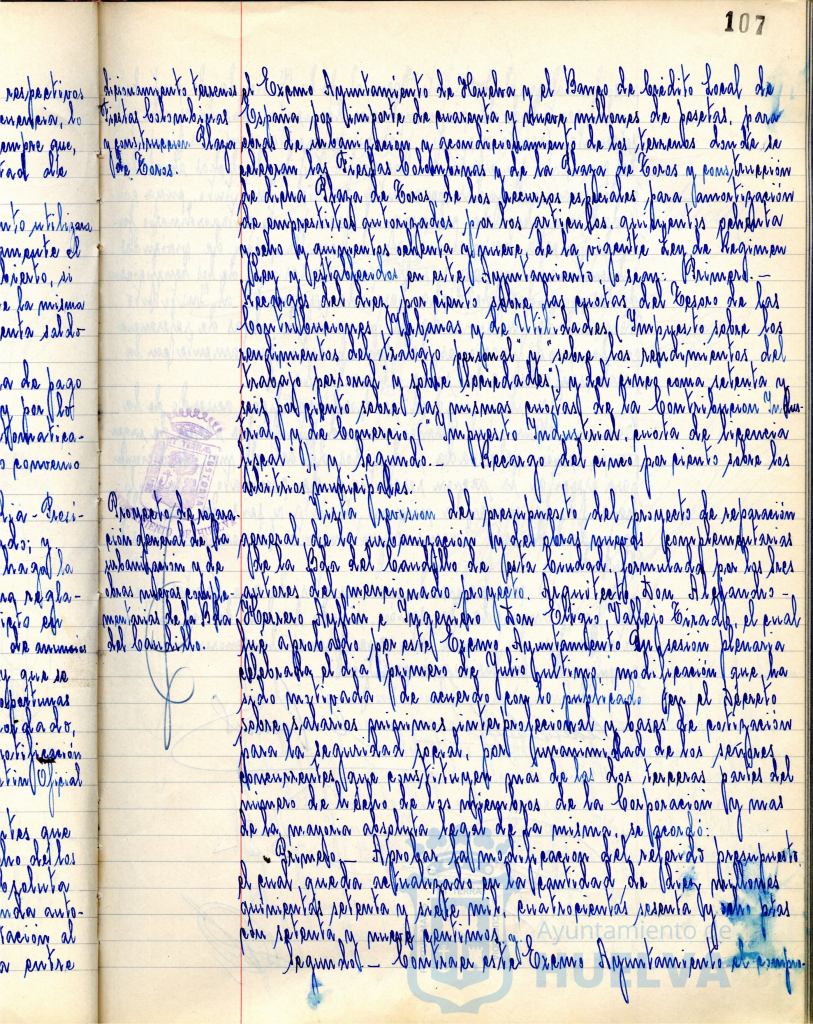 107
respectivos
lo
empre que,
tad de
nto utilizara
amente el
si
e la misma
enta saldo
a de pago
y por los
tomatica-
o convenio
Presi-
ndo; y
haga la
na regla-
en
de anuncios
y que se
oportunas
Oficial
tes que
absoluta
nda auto-
tación al
a entre
dicionamiento terrenos
Fiestas Colombinas
y construccion Plaza
de Toros.
Proyecto de repara-
ción general de la
urbanizacion y de
obras nuevas comple-
mentarias de la Bda
del Caudillo.
el Excmo Ayuntamiento de Huelva y el Banco de Crédito Local de
España por importe de cuarenta y nueve millones de pesetas, para
obras de urbanización y acondicionamiento de los terrenos donde se
celebran las Fiestas Colombinas y de la Plaza de Toros y construcción
de dicha Plaza de Toros, de los recursos especiales para amortización
de empréstitos autorizados por los artículos, quinientos ochenta
y ocho y quinientos ochenta y nueve, de la vigente Ley de Regimen
Local y establecidos en este Ayuntamiento, o sean: Primero.-
Recargos del diez por ciento sobre las cuotas del Tesoro de las
Contribuciones Urbanas y de Utilidades, (Impuesto sobre los
rendimientos del trabajo personal" y "sobre los rendimientos del
trabajo personal" y sobre "Sociedades"), y del cinco coma setenta y
seis por ciento sobre las mismas cuotas de la Contribucion Indus-
trial y de Comercio, ("Impuesto Industrial, cuota de licencia
fiscal"); y segundo.- Recargo del cinco por ciento sobre los
arbitrios municipales.
Vista revision del presupuesto del proyecto de reparación
general de la urbanización y de obras nuevas complementarias
de la Bda del Caudillo de esta Ciudad, formulada por los tres
autores del mencionado proyecto, Arquitecto, Don Alejandro
Herrero Ayllón e Ingeniero Don Eligio Vallejo Tirado, el cual
fue aprobado por este Excmo Ayuntamiento en sesion plenaria
celebrada el dia primero de Julio ultimo, modificación que ha
sido motivada de acuerdo con lo publicado en el Decreto
sobre salarios minimos interprofesional y bases de cotización
para la seguridad social, por unanimidad de los señores
concurrentes, que constituyen mas de las dos terceras partes del
número de hecho de los miembros de la Corporación y mas
de la mayoria absoluta legal de la misma, se acordó:
Primero.- Aprobar la modificacion del referido presupuesto,
el cual queda actualizado en la cantidad de diez millones
quinientas setenta y siete mil cuatrocientas sesenta y ocho ptas
con setenta y nueve centimos.
Segundo.- Contraer este Excmo Ayuntamiento el compro-
Ayuntamiento de
HUELVA